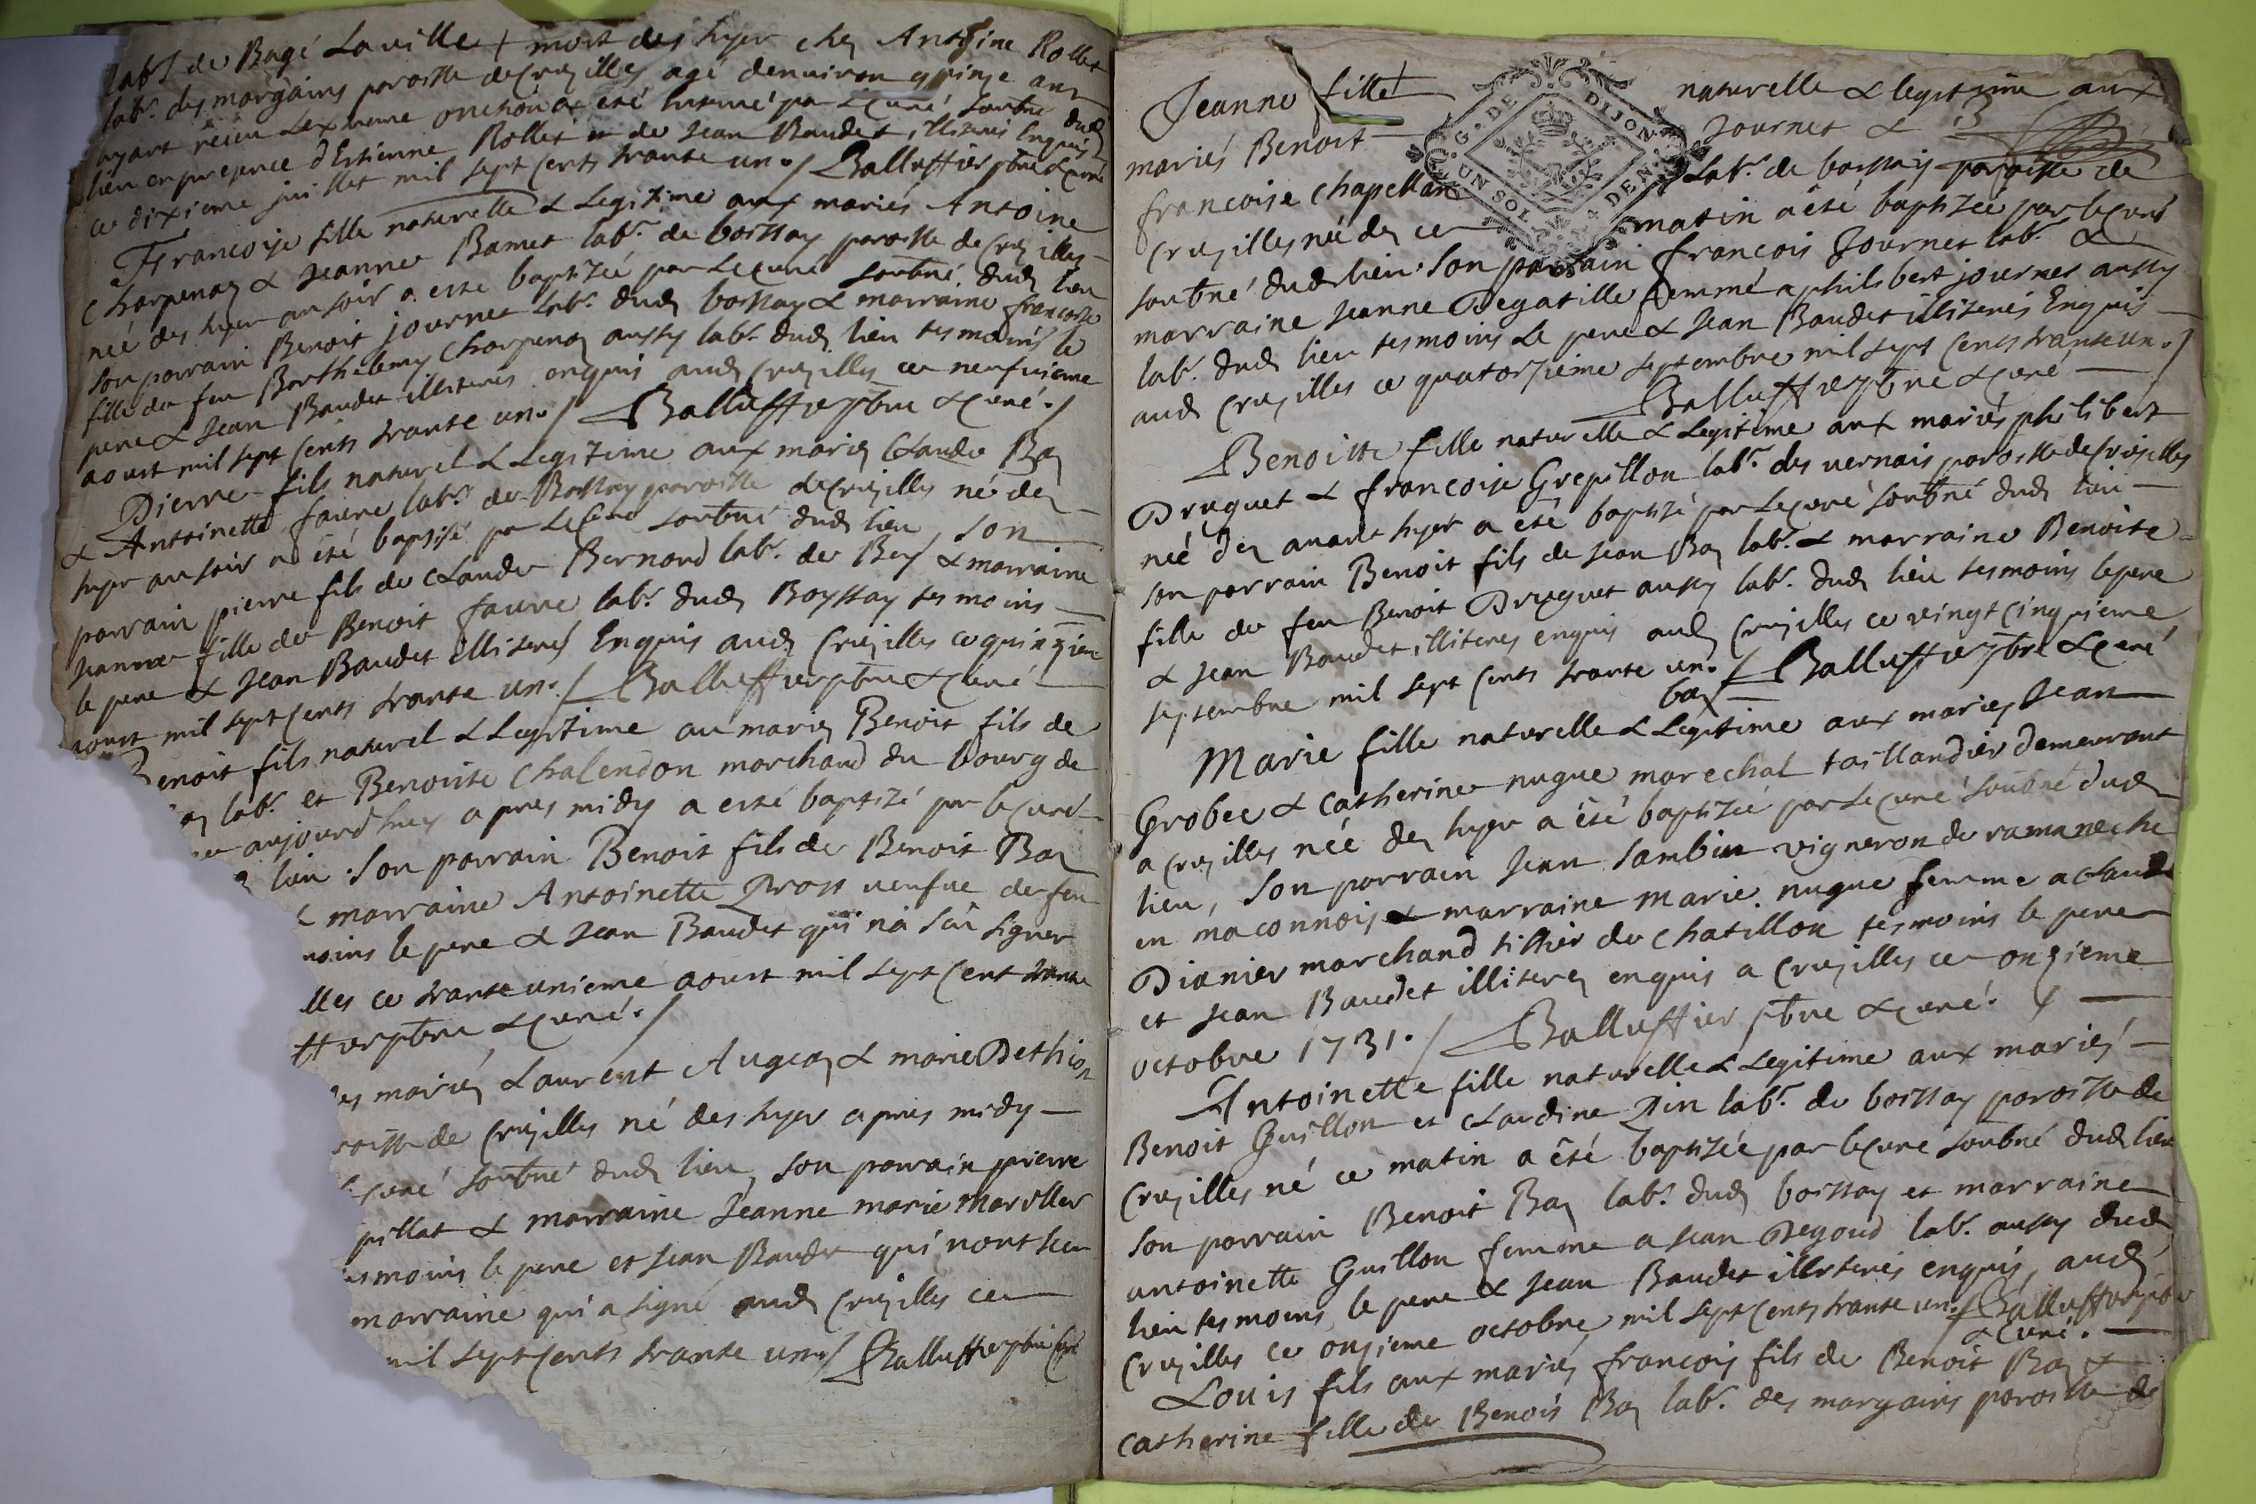 labr. de Bagé Laville mort des hyer chez Antoine Rollet
labr. des margains paroisse de Cruzilles agé denuiron quinze ans
ayant réceu Lextreme onction a eté Inhumé par Le curé soubné dud
lieu en presence d'Estienne Rollet et de Jean Baudet illiterés Enquis
ce dixieme juillet mil sept Cents trante un ./ Balluffier ptre & curé
Francoise fille naturelle & Legitime aux mariés Antoine
Charpenay & Jeanne Bamet labr. de boissay paroisse de Cruzilles
neé des hyer au soir a esté baptizeé par Le curé soubné dud lieu
son parrain Benoit journet labr. dud boissay & marraine francoise
fille de feu Barthelemy Charpenay aussy labr. dud lieu tesmoins le
pere & Jean Baudet illiterés enquis aud Cruzilles ce neufuieme
aoust mil sept Cents trante un ./ Balluffier ptre & curé ./
Pierre fils naturel & Legitime aux mariez Claude Bay
& Antoinette faure labr. de Boissay paroisse de Cruzilles né dez
hyer au soir a été baptisé par Le Curé soubné dud lieu, son
parrain pierre fils de Claude Bernard labr. de Bey & marraine
Jeanne fille de Benoit faure labr. dud Boyssay tesmoins
le pere & Jean Baudet illiterés Enquis aud Cruzilles ce quinzieme
aoust mil sept Cents trante un ./ Balluffier ptre & curé
Benoit fils naturel & Legitime au mariez Benoit fils de
labr. et Benoiste Chalendon marchand du bourg de
aujourd'huy apres midy a esté baptizé par le curé
lieu. Son parrain Benoit fils de Benoit Bay
marraine Antoinette Pross ueufue de feu
moins le pere & Jean Baudet qui na sçu signer
lles ce trante unieme aoust mil sept Cent trante
ffier ptre & curé ./
es mariéz Laurent Augeay & marie Dethion
roisse de Cruzilles né des hyer apres midy
curé soubné dud lieu, son parrain pierre
pillat & marraine Jeanne marie mariller
esmoins le pere et Jean Baudet qui nont sceu
marraine qui a signé aud Cruzilles ce
mil sept Cents trante un ./ Balluffier ptre Curé
Jeanne fille naturelle & legitime aux
mariés Benoit Journet &
francoise Chapellan labr. de boissay paroisse de
Cruzilles neé dez ce matin a été baptizeé par le curé
soubné dud lieu. Son parrain francois Journet labr. &
marraine Jeanne Degatille femme a philibert journet aussy
labr. dud lieu tesmoins Le pere & Jean Baudet illiterés Enquis
aud Cruzilles ce quatorzieme septembre mil sept Cents trante un ./
Balluffier ptre & curé
G. DE DIJON
UN SOL 4 DEN.
Benoitte fille naturelle & Legitime aux mariés philibert
Druguet & francoise Grepillon labr. des uernais paroisse de Cruzilles
neé dez auant hyer a été baptizé par Le curé soubné dud lieu
son parrain Benoit fils de Jean Bay labr. & marraine Benoite
fille de feu Benoit Druguet aussy labr. dud lieu tesmoins le pere
& Jean Baudet illiteres enquis aud Cruzilles ce vingt cinquieme
septembre mil sept Cents trante un ./ Balluffier ptre & curé
Marie fille naturelle & Legitime aux mariez Jean
Grobee & Catherine nugue marechal taillandier demeurant
a Cruzilles neé dez hyer a été baptizeé par Le curé soubné dud
lieu, Son parrain Jean Sambin vigneron de ramaneche
en maconnois & marraine marie nugue femme a Claude
Dianier marchand tissier de Chatillon tesmoins le pere
et Jean Baudet illiterez enquis a Cruzilles ce onzieme
octobre 1731 ./ Balluffier ptre & curé
Antoinette fille naturelle & Legitime aux mariés
Benoit Guillon et Claudine Pin labr. de boissay paroisse de
Cruzilles né ce matin a été baptizeé par le curé soubné dud lieu
Son parrain Benoit Bay labr. dud boissay et marraine
antoinette Guillon femme a Jean Degoud labr. aussy dud
lieu tesmoins le pere & Jean Baudet illiterés enquis, aud
Cruzilles ce onzieme octobre mil sept Cents trante un ./ Balluffier ptre
& curé.
Louis fils aux mariez francois fils de Benoit Bay &
Catherine fille de Benoit Bay labr. des margains paroisse de